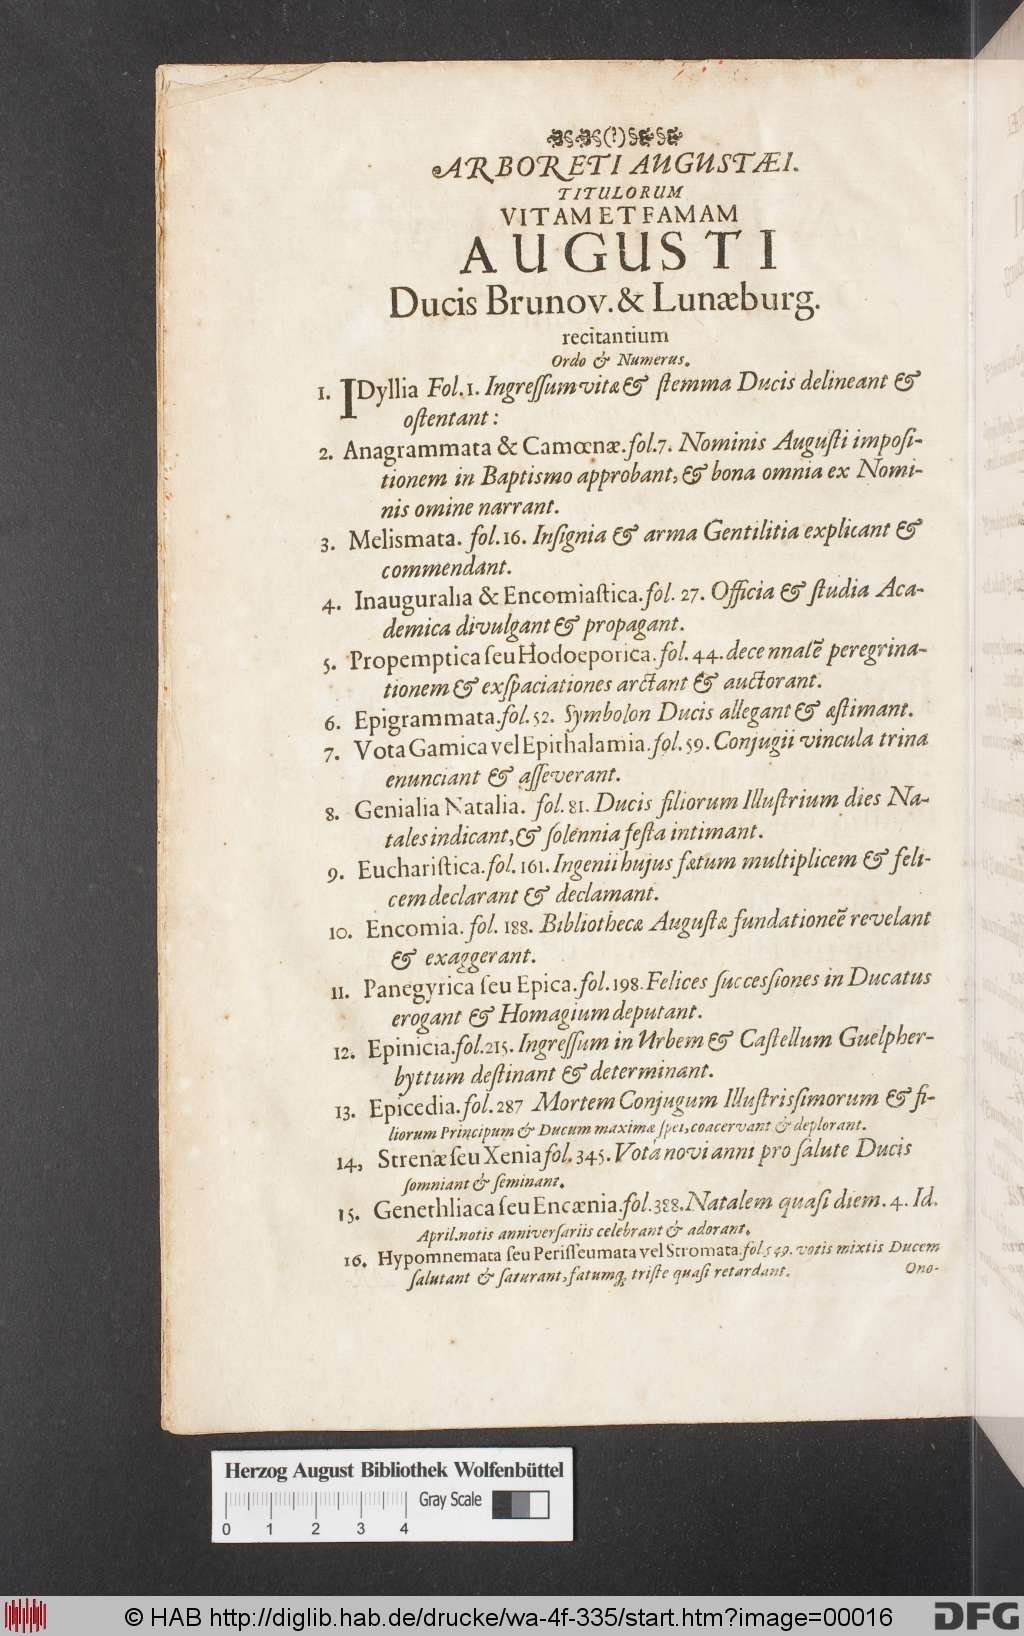 ARBORETI AUGUSTÆI.
TITULORUM
VITAM ET FAMAM
AUGUSTI
Ducis Brunov. & Lunæburg.
recitantium
Ordo & Numerus.
1. IDyllia Fol. 1. Ingreſſum vitæ & ſtemma Ducis delineant &
oſtentant:
2. Anagrammata & Camœnæ. fol. 7. Nominis Auguſti impoſi-
tionem in Baptismo approbant, & bona omnia ex Nomi-
nis omine narrant.
3. Melismata. fol. 16. Inſignia & arma Gentilitia explicant &
commendant.
4. Inauguralia & Encomiaſtica. fol. 27. Officia & ſtudia Aca-
demica divulgant & propagant.
5. Propemptica ſeu Hodoeporica. fol. 44. decennalẽ peregrina-
tionem & exſpaciationes arctant & auctorant.
6. Epigrammata. fol. 52. Symbolon Ducis allegant & æſtimant.
7. Vota Gamica vel Epithalamia. fol. 59. Conjugii vincula trina
enunciant & aſſeverant.
8. Genialia Natalia. fol. 81. Ducis filiorum Illuſtrium dies Na-
tales indicant, & ſolennia feſta intimant.
9. Euchariſtica. fol. 161. Ingenii hujus fætum multiplicem & feli-
cem declarant & declamant.
10. Encomia. fol. 188. Bibliothecæ Auguſtæ fundationeẽ revelant
& exaggerant.
11. Panegyrica ſeu Epica. fol. 198. Felices ſucceſſiones in Ducatus
erogant & Homagium deputant.
12. Epinicia. fol. 215. Ingreſſum in Urbem & Caſtellum Guelpher-
byttum deſtinant & determinant.
13. Epicedia. fol. 287 Mortem Conjugum Illuſtriſſimorum & fi-
liorum Principum & Ducum maximæ ſpei, coacervant & deplorant.
14, Strenæ ſeu Xenia fol. 345. Vota novi anni pro ſalute Ducis
ſomniant & ſeminant.
15. Genethliaca ſeu Encænia. fol. 388. Natalem quaſi diem. 4. Id.
April. notis anniverſariis celebrant & adorant.
16. Hypomnemata ſeu Periſſeumata vel Stromata. fol. 549. votis mixtis Ducem
ſalutant & ſaturant, fatumq; triſte quaſi retardant.
Ono-
Herzog August Bibliothek Wolfenbüttel
Gray Scale
0 1 2 3 4
© HAB http://diglib.hab.de/drucke/wa-4f-335/start.htm?image=00016
DFG